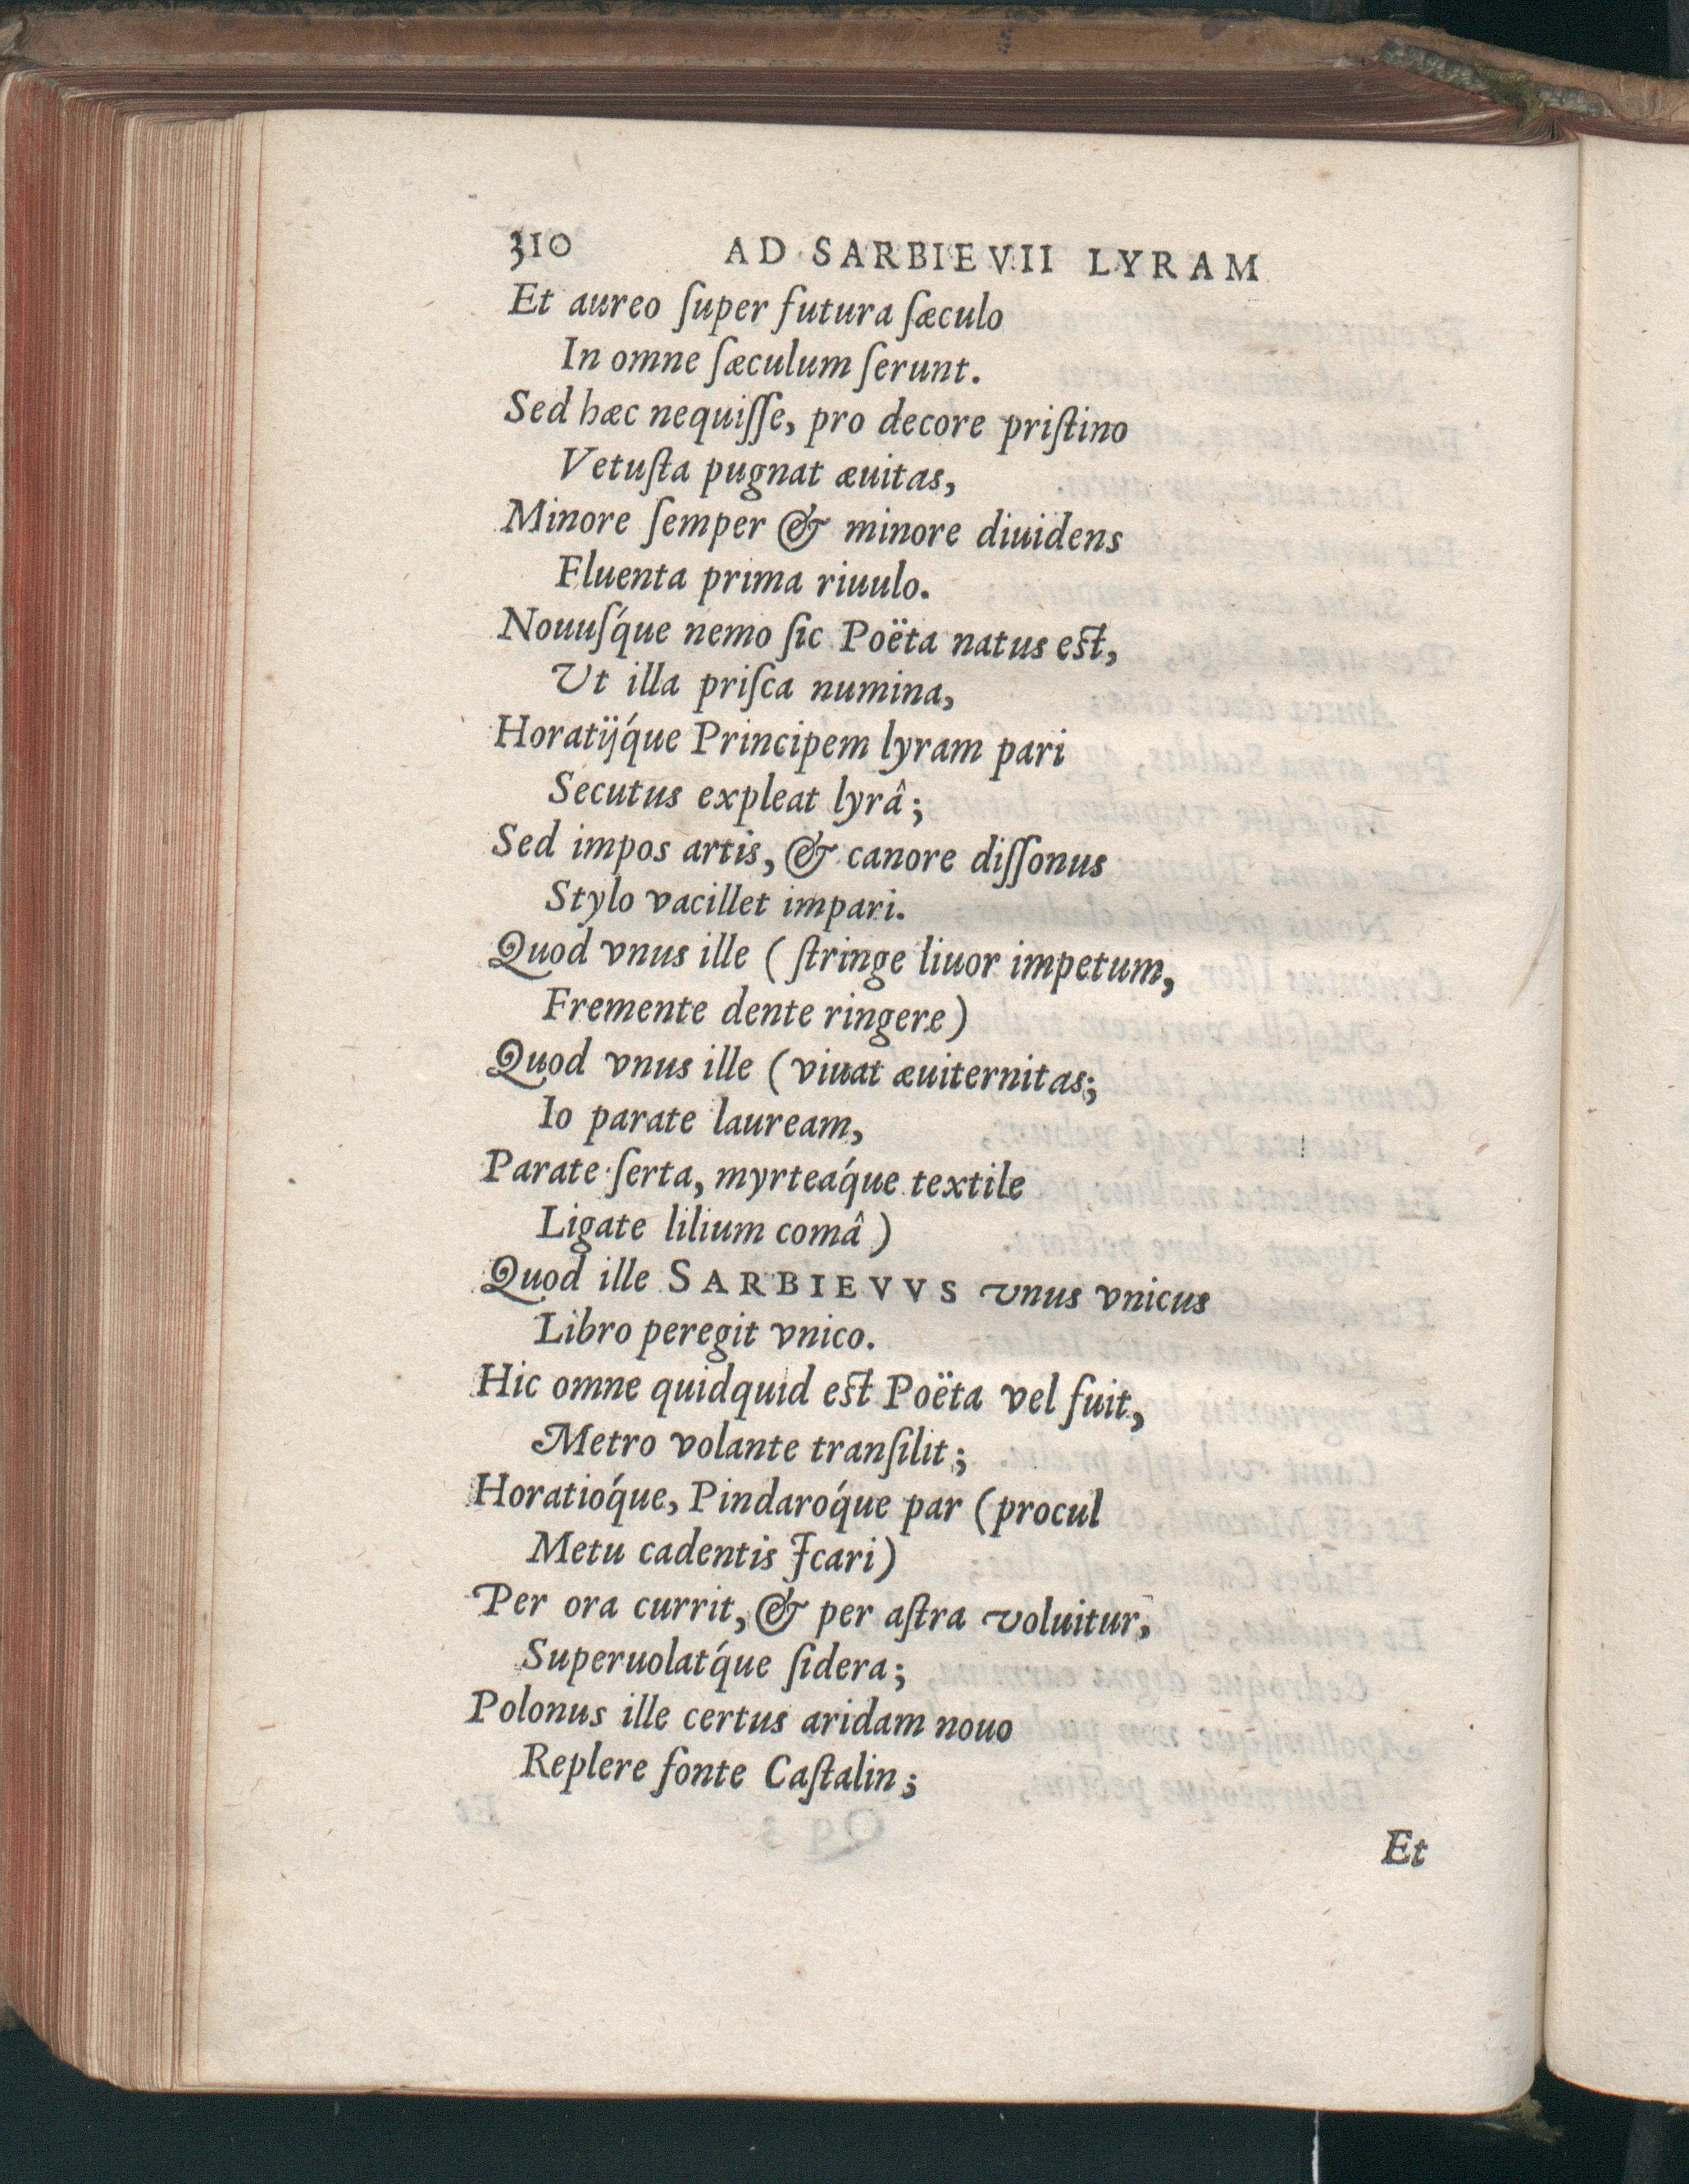 310 AD SARBIEVII LYRAM
Et aureo ſuper futura ſæculo
In omne ſæculum ſerunt.
Sed hæc nequiſſe, pro decore priſtino
Vetuſta pugnat æuitas,
Minore ſemper & minore diuidens
Fluenta prima riuulo.
Nouuſq́ue nemo ſic Poëta natus eſt,
Ut illa priſca numina,
Horatijq́ue Principem lyram pari
Secutus expleat lyrâ;
Sed impos artis, & canore diſſonus
Stylo vacillet impari.
Quod vnus ille (ſtringe liuor impetum,
Fremente dente ringere)
Quod vnus ille (viuat æuiternitas;
Io parate lauream,
Parate ſerta, myrteaq́ue textile
Ligate lilium comâ)
Quod ille SARBIEVVS vnus vnicus
Libro peregit vnico.
Hic omne quidquid eſt Poëta vel fuit,
Metro volante tranſilit;
Horatioq́ue, Pindaroq́ue par (procul
Metu cadentis Icari)
Per ora currit, & per aſtra voluitur,
Superuolatq́ue ſidera;
Polonus ille certus aridam nouo
Replere fonte Caſtalin;
Et